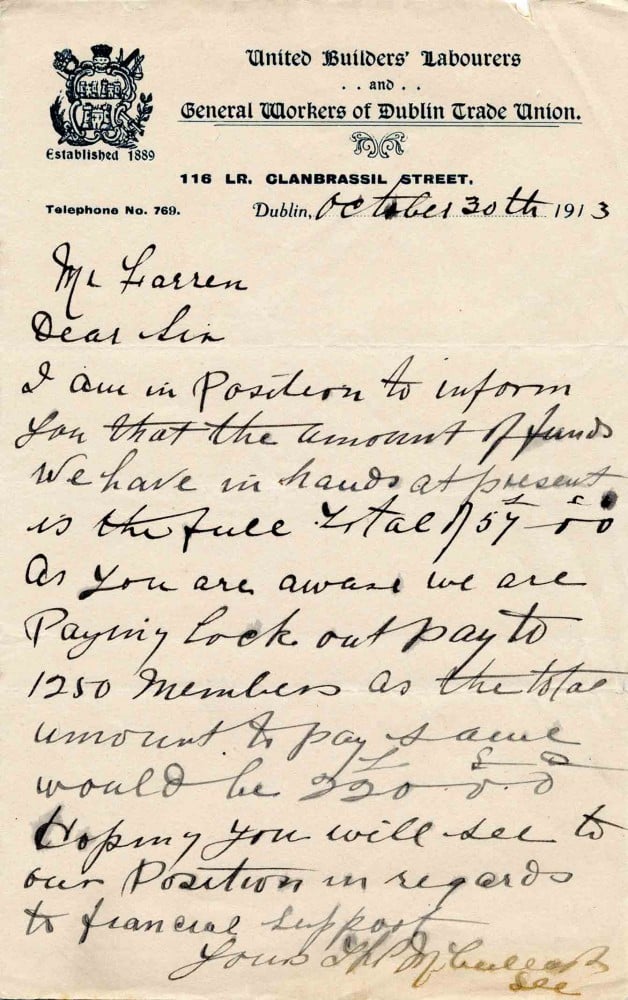 United Builders' Labourers
. . and . .
General Workers of Dublin Trade Union.
Established 1889
116 LR. CLANBRASSIL STREET,
Telephone No. 769.
Dublin, October 30th 1913
Mr Farren
Dear Sir
I am in Position to inform
you that the amount of funds
We have in hands at present
is the full total of £57 - 0 0
As you are aware we are
Paying lock out pay to
1250 Members as the total
amount to pay same
would be
£ S D
220 0. 0
Hoping you will see to
our Position in regards
to financial support
Yours
Sec